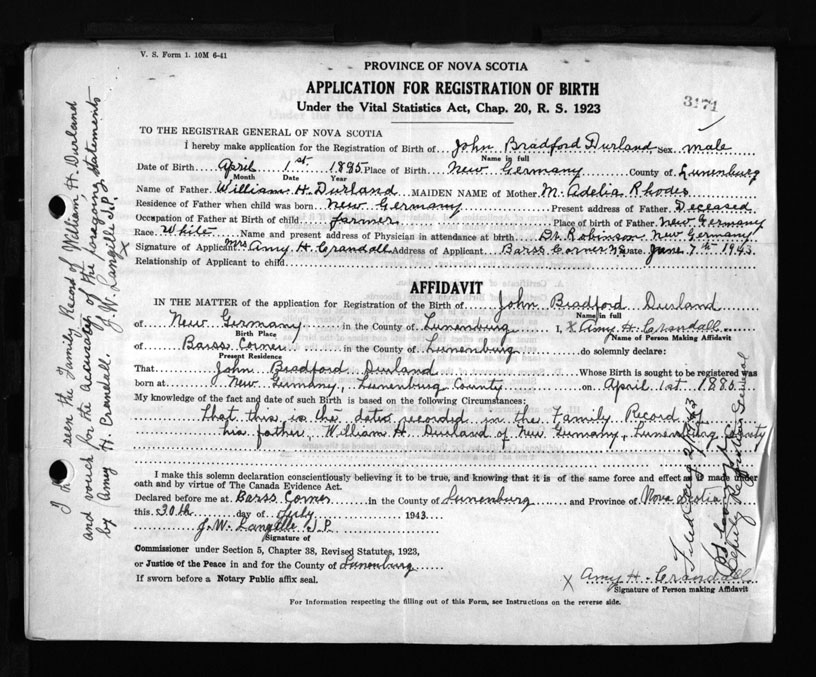 V. S. Form 1. 10M 6-41
PROVINCE OF NOVA SCOTIA
APPLICATION FOR REGISTRATION OF BIRTH
Under the Vital Statistics Act, Chap. 20, R. S. 1923
3171
TO THE REGISTRAR GENERAL OF NOVA SCOTIA
I hereby make application for the Registration of Birth of John Bradford Durland Sex male
Name in full
Date of Birth April 1st 1895 Place of Birth New Germany County of Lunenburg
Month Date Year
Name of Father William H. Durland MAIDEN NAME of Mother M. Adelia Rhodes
Residence of Father when child was born New Germany Present address of Father Deceased
Occupation of Father at Birth of child farmer Place of birth of Father New Germany
Race White Name and present address of Physician in attendance at birth Dr. Robinson New Germany
Signature of Applicant Mrs Amy H. Crandall Address of Applicant Barss Corner N.S. Date June 7th 1943
Relationship of Applicant to child
AFFIDAVIT
IN THE MATTER of the application for Registration of the Birth of John Bradford Durland
Name in full
of New Germany in the County of Lunenburg I, X Amy H. Crandall
Birth Place Name of Person Making Affidavit
of Barss Corner in the County of Lunenburg do solemnly declare:
Present Residence
That John Bradford Durland Whose Birth is sought to be registered was
born at New Germany, Lunenburg County on April 1st
My knowledge of the fact and date of such Birth is based on the following Circumstances:
that this is the date recorded in the Family Record of
his father, William H. Durland of New Germany, Lunenburg County
I make this solemn declaration conscientiously believing it to be true, and knowing that it is of the same force and effect as if made under
oath and by virtue of The Canada Evidence Act.
Declared before me at Barss Corner in the County of Lunenburg and Province of Nova Scotia
this 30th day of July 1943
J. W. Langille J.P.
Signature of
Commissioner under Section 5, Chapter 38, Revised Statutes, 1923,
or Justice of the Peace in and for the County of Lunenburg
If sworn before a Notary Public affix seal.
X Amy H. Crandall
Signature of Person making Affidavit
For Information respecting the filling out of this Form, see Instructions on the reverse side.
I seen the Family Record of William H. Durland
and vouch for the accuracy of the foregoing statements
by Amy H. Crandall. J. W. Langille J.P.
X
Filed Aug 2/1943
Deputy Registrar General